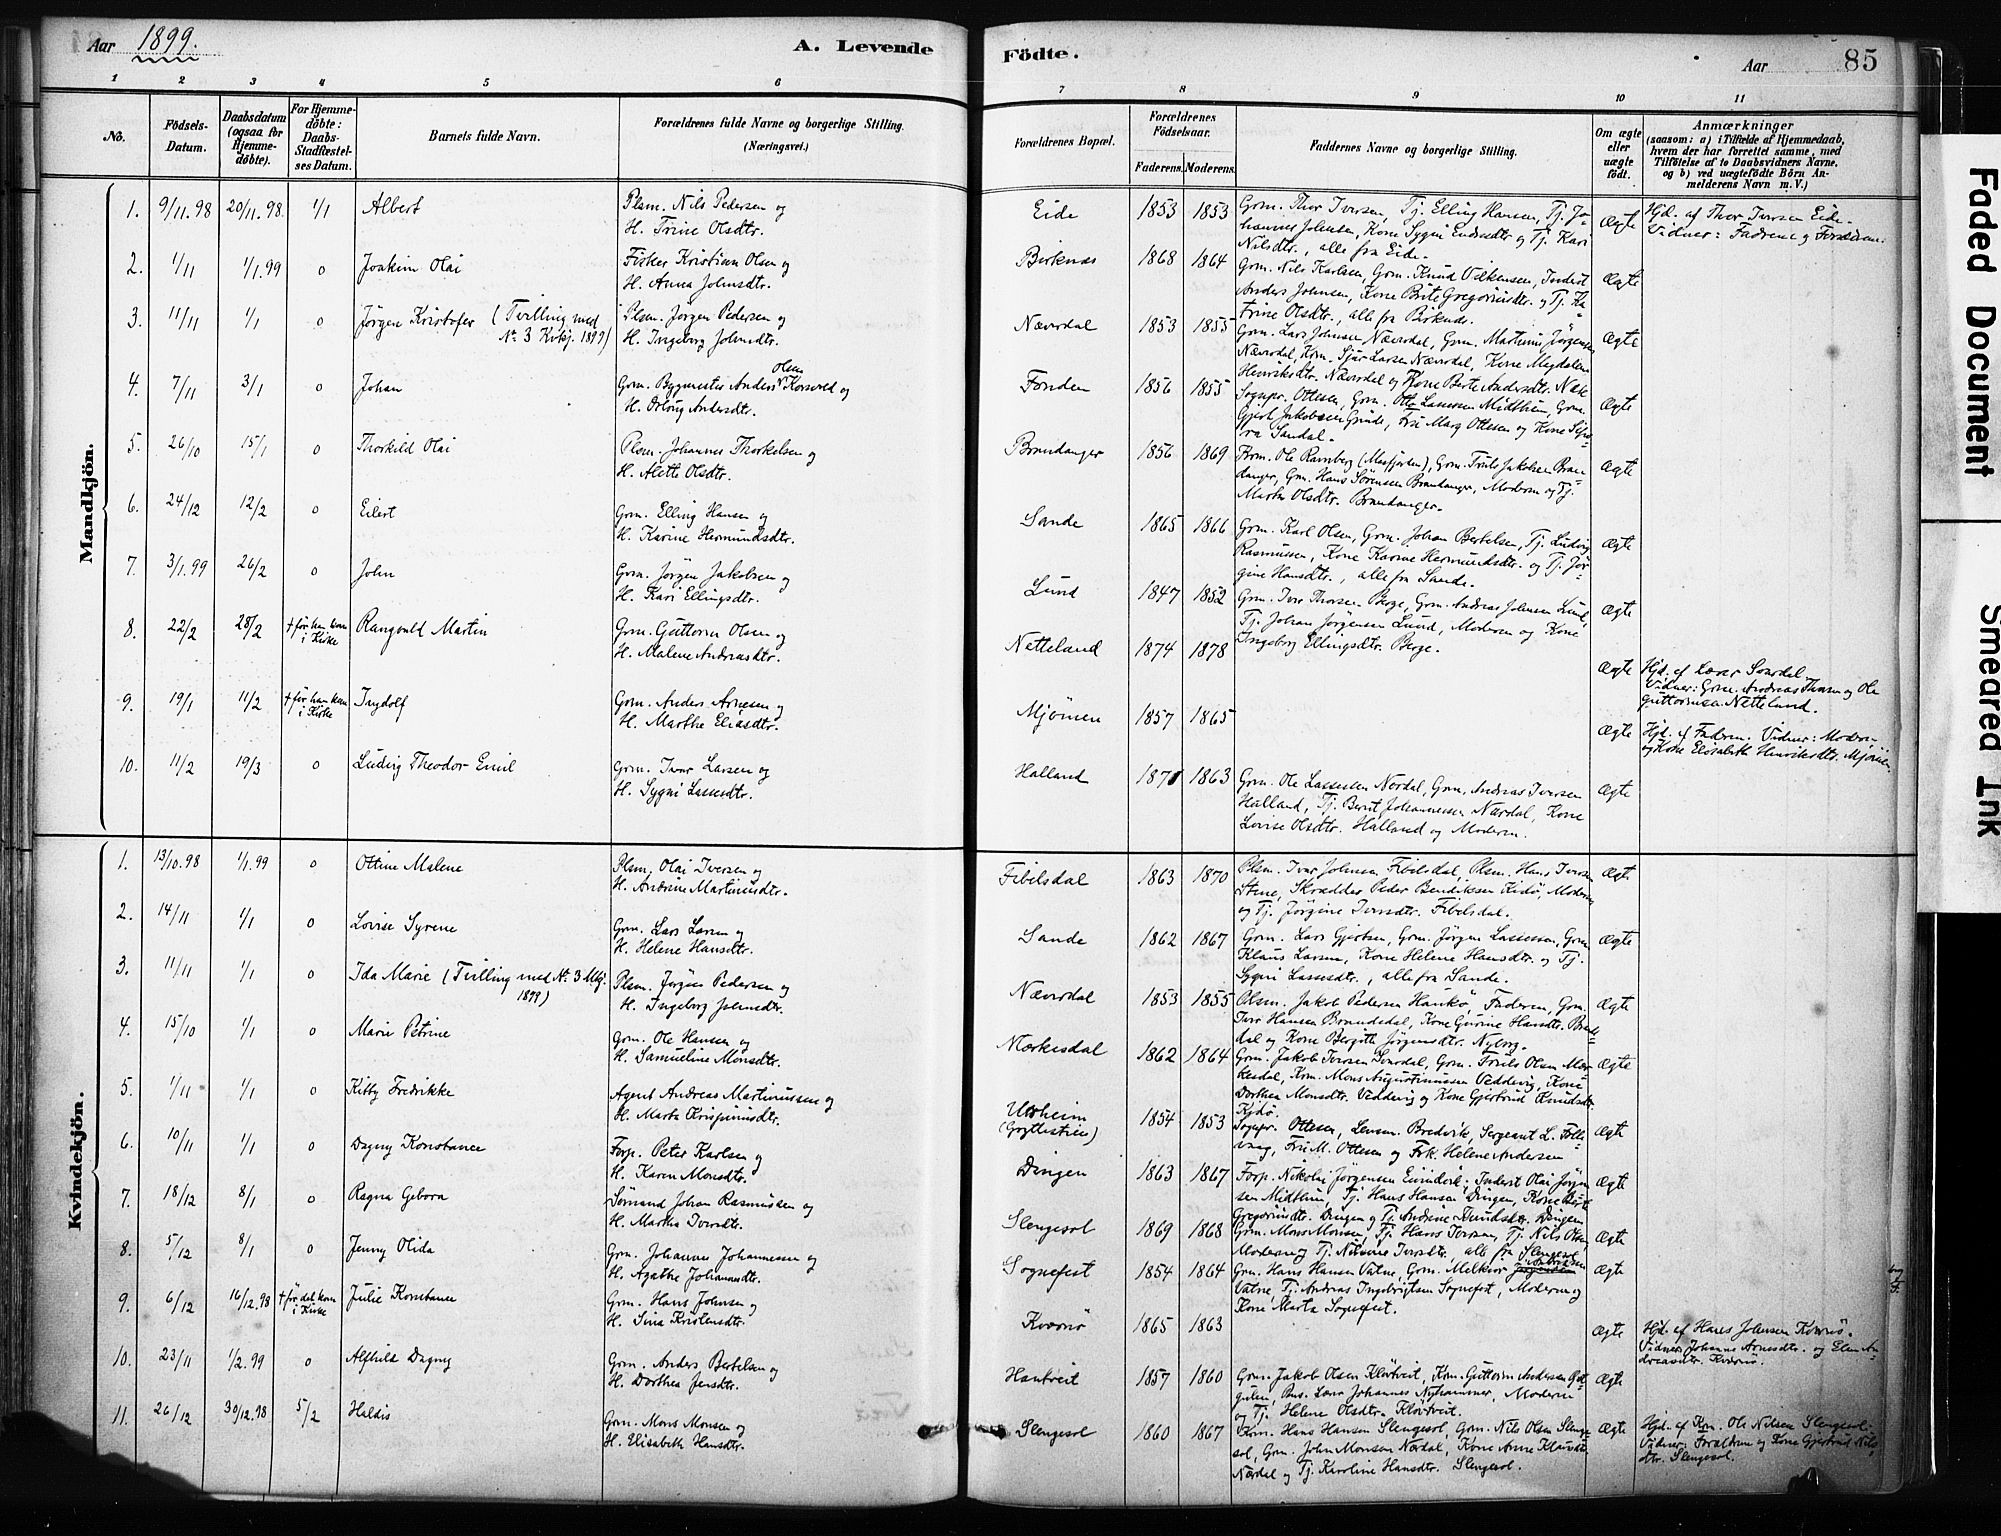 Aar 1899.
A. Levende
Födte.
Aar
85
1 2 3 4 5 6
7 8 9 10 11
No.
Födsels-
Datum.
Daabsdatum
(ogsaa for
Hjemme-
döbte).
For Hjemme-
döbte:
Daabs-
Stadfæstel-
ses Datum.
Barnets fulde Navn.
Forældrenes fulde Navne og borgerlige Stilling.
(Næringsvei.)
Forældrenes Bopæl.
Forældrenes
Födselsaar.
Faderens. Moderens.
Faddernes Navne og borgerlige Stilling.
Om ægte
eller
uægte
födt.
Anmærkninger
(saasom: a) i Tilfælde af Hjemmedaab,
hvem der har forrettet samme, med
Tilföielse af to Daabsvidners Navne,
og b) ved uægtefödte Börn An-
melderens Navn m. V.)
Mandkjön.
1. 9/11.98 20/11.98. 1/1 Albert Plsm. Nils Pedersen og
H. Trine Olsdtr.
Eide 1853 1853 Grm. Thor Iversen, Tj. Elling Hansen, Tj. Jo-
hannes Johnsen, Kone Sygni Endresdtr og Tj. Kari
Nilsdtr., alle fra Eide.
Ægte Hjd. af Thor Iversen Eide.
2. 1/11 1/1.99 0 Joakim Olai Fisker Kristian Olsen og
H. Anna Johnsdtr.
Birknes 1868 1864 Grm. Nils Karlsen, Grm. Knud Vilkensen, Inderst
Anders Johnsen, Kone Brite Gregoriusdtr. og Tj. Ka-
trine Olsdtr., alle fra Birknes.
Ægte
3. 11/11 1/1 0 Jörgen Kristofer (Tvilling med
No. 3 Kvkj. 1899)
Plsm. Jörgen Pedersen og
H. Ingeborg Johnsdtr.
Nævrdal 1853 1855 Grm. Lars Johnsen Nævrdal, Grm. Martinus Jörgensen
Nævrdal, Kone Magdalene
Henriksdtr. Nævrdal
Ægte
4. 7/11 3/1 0 Johan Grm. Bygmester Anders Olsen Korsvold og
H. Anderdtr.
Fonden 1856 1855 Sogepr. Ottesen, Grm. Otto Lassesen Midthun, Grm.
Gjert Jakobsen Grinde, Fru Marg Ottesen og Kone
Sandal.
Ægte
5. 26/10 15/1 0 Thorkild Olai Plsm. Johannes Thorkelsen og
H. Alette Olsdtr.
Brandanger 1856 1869 Ole Ramberg (Masfjorden), Grm. Truls Jakobsen Bran-
danger, Grm. Hans Sörensen Brandanger, Moderen og Tj.
Marta Olsdtr. Brandanger.
Ægte
6. 24/12 12/2 0 Eilert Grm. Elling Hansen og
H. Karine Hermundsdtr.
Sande 1865 1866 Grm. Karl Olsen, Grm. Johan Bertelsen, Tj. Ludvig
Rasmussen, Kone Karine Hermundsdtr. og Tj. Jör-
gine Hansdtr., alle fra Sande.
Ægte
7. 3/1.99 26/2 0 John Grm. Jörgen Jakobsen og
H. Kari Ellingsdtr.
Lund 1847 1852 Grm. Iver Thorsen Berge, Grm. Andreas Johnsen Lund,
Tj. Johan Jörgensen Lund, Moderen og Kone
Ingeborg Ellingsdtr. Berge.
Ægte
8. 22/2 28/2 + för han kom
i Kirke
Rangvald Martin Grm. Guttorm Olsen og
H. Malene Andreasdtr.
Netteland 1874 1878 Ægte Hjd. af Lærer Sördal
Vidner: Grm. Andreas Thorsen og Ole
Guttormsen Netteland.
9. 19/1 11/2 + för han kom
i Kirke
Ingolf Grm. Anders Arnesen og
H. Marthe Eliasdtr.
Mjömen 1857 1865 Ægte Hjd. af Faderen. Vidner: Moderen
og Kone Elisabeth Henriksdtr. Mjömen
10. 11/2 19/3 0 Ludvig Theodor Emil Grm. Ivar Larsen og
H. Sygni Lassesdtr.
Halland 1871 1863 Grm. Ole Lassesen Nordal, Grm. Andreas Iversen
Halland, Tj. Bernt Johannessen Nærdal, Kone
Lovise Olsdtr. Halland og Moderen.
Ægte
Kvindekjön.
1. 13/10.98 1/1.99 0 Ottine Malene Plsm. Olai Iversen og
H. Andrine Martinusdtr.
Fibelsdal 1863 1870 Plsm. Ivar Johnsen Fibelsdal, Plsm. Hans Iversen
Stene, Skrædder Peder Bendiksen Kidö, Moderen
og Tj. Jörgine Iversdtr. Fibelsdal.
Ægte
2. 14/11 1/1 0 Lovise Syrene Grm. Lars Larsen og
H. Helene Hansdtr.
Sande 1862 1867 Grm. Lars Gjertsen, Grm. Jörgen Lassessen, Grm.
Klaus Larsen, Kone Helene Hansdtr. og Tj.
Sygni Lassesdtr., alle fra Sande.
Ægte
3. 11/11 1/1 0 Ida Marie (Tvilling med No. 3 Mkj.
1899)
Plsm. Jörgen Pedersen og
H. Ingeborg Johnsdtr.
Nævrdal 1853 1855 Plsm. Jakob Pedersen Haukö, Faderen, Grm.
Iver Hansen Brandsdal, Kone Gurine Hansdtr. Brands-
dal og Kone Bergitte Jörgensdtr. Nyborg.
Ægte
4. 15/10 1/1 0 Marie Petrine Grm. Ole Hansen og
H. Samueline Monsdtr.
Mærkesdal 1862 1864 Grm. Jakob Iversen Sördal, Grm. Truls Olsen Mær-
kesdal, Krm. Mons Augustinussen Veddevig, Kone
Dorthea Monsdtr. Veddevig og Kone Gjertrud Knudsdtr.
Kidö.
Ægte
5. 1/11 1/1 0 Kitty Fredrikke Agent Andreas Martinussen og
H. Marta Krispinusdtr.
1854 1853 Sogepr. Ottesen, Lensm. Bredvik, Sergeant L. Folle-
vaag, Fru M. Ottesen og Frk. Helene Andersen
Ægte
6. 10/11 1/1 0 Dagny Konstance Forp. Peter Karlsen og
H. Karen Monsdtr.
Dingen 1863 1867 Forp. Nikolai Jörgensen, Inderst Olai Jörgen-
sen Midthun, Tj. Hans Hansen Dingen, Kone Berit
Gregoriusdtr. Dingen og Tj. Andrine Dingen
Ægte
7. 18/12 8/1 0 Ragna Gebora Sömand Johan Rasmussen og
H. Martha Iversdtr.
Slengesol 1869 1868 Grm. Mons Monsen, Tj. Hans Iversen, Tj. Nils Olsen,
Moderen og Tj. Nilsine Iversdtr. alle fra Slengesol.
Ægte
8. 5/12 8/1 0 Jenny Olida Grm. Johannes Johannessen og
H. Agathe Johannesdtr.
Sognefest 1854 1864 Grm. Hans Hansen Vatne, Grm. Melkior
Vatne, Tj. Andreas Ingebrigtsen Sognefest, Moderen og
Kone Marta Sognefest.
Ægte
9. 6/12 16/12.98 + för det kom
i Kirke
Julie Konstance Grm. Hans Johnsen og
H. Sina Kristensdtr.
Kværnö 1865 1863 Ægte Hjd. af Hans Johnsen Kværnö.
Vidner: Johanne Arnesdtr. og Elen An-
dreasdtr. Kværnö.
10. 23/11 1/2.99 0 Alfhild Dagny Grm. Anders Bertelsen og
H. Dorthea Jensdtr.
Hantveit 1857 1860 Grm. Jakob Olsen Klövtveit, Krm. Guttorm Andersen
Johannes Nyhammer, Moderen
og Tj. Helene Olsdtr. Klövtveit.
Ægte
11. 26/12 30/12.98 5/2 Haldis Grm. Mons Monsen og
H. Elisabeth Hansdtr.
Slengesol 1860 1867 Krm. Hans Hansen Slengesol, Grm. Nils Olsen Slenge-
sol, Grm. John Monsen Nordal, Kone Anne Klausdtr
Nordal og Tj. Karoline Hansdtr. Slengesol.
Ægte Hjd. af Krm. Ole Nilsen Slengesol.
Vidner: Forældrene og Kone Gjertrud Nils-
dtr. Slengesol.
Faded Document
Smeared Ink